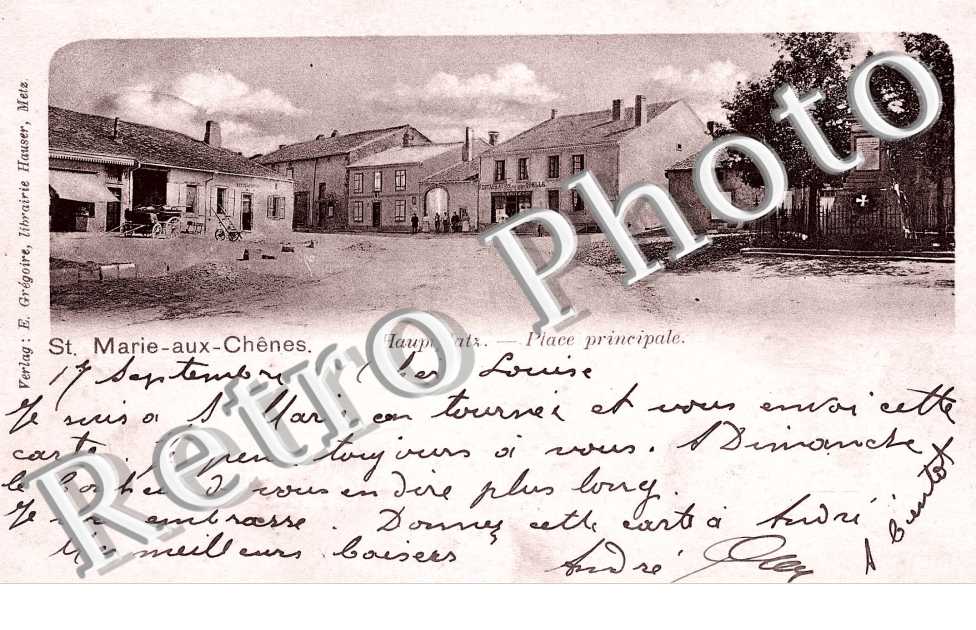 Verlag : E. Grégoire, librairie Hauser, Metz.
Retro Photo
St. Marie-aux-Chênes.
Hauptplatz. — Place principale.
17 Septembre Cher Louise
Je suis à St Marie en tournée et vous envoi cette
carte. Je pense toujours à vous. A Dimanche
le bonheur de vous en dire plus long.
Je embrasse. Donnez cette carte à André
meilleurs baisers
André
A bientot